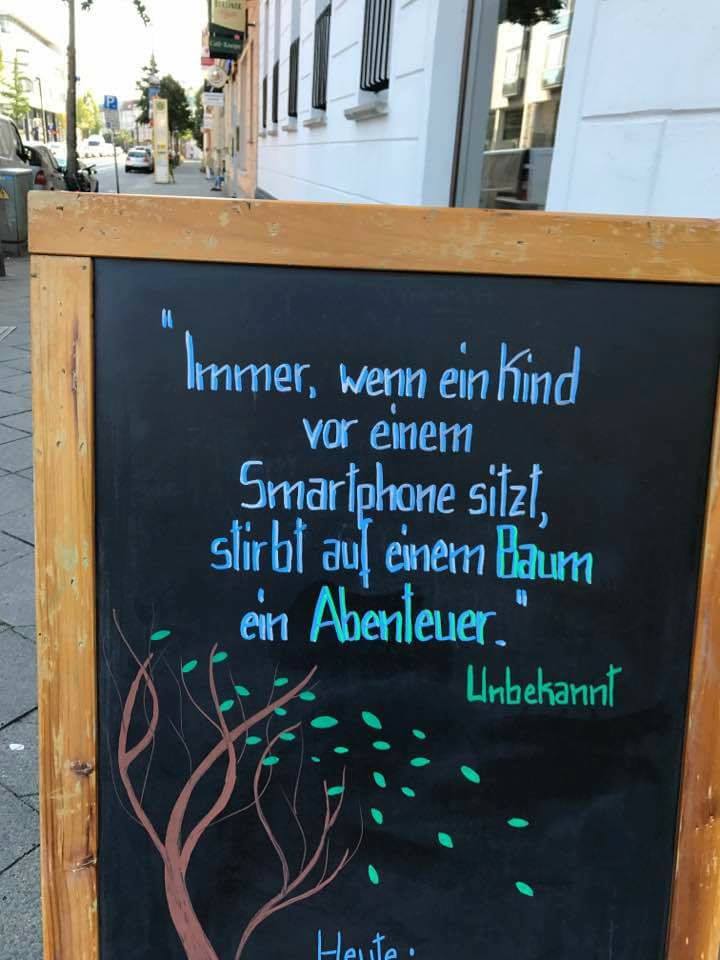 "Immer, wenn ein Kind
vor einem
Smartphone sitzt,
stirbt auf einem Baum
ein Abenteuer."
Unbekannt
Heute: